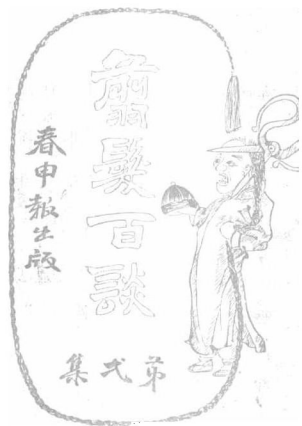 翦髮百談
春申報出版
第弍集